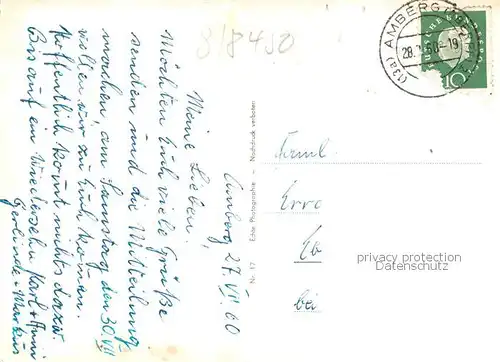 Amberg, 27. VII. 60
Meine Lieben.
Möchten Euch viele Grüße
senden und die Mitteilung
machen, am Samstag den 30. VII
wollen wir zu Euch kommen.
Hoffentlich kommt nichts dazw.
Bis auf ein Wiedersehn Karl + Anni
Gerlinde + Markus
Echte Photographie – Nachdruck verboten
Nr. 17
318450
(13a) AMBERG
28.7.60-19
DEUTSCHE
10
Faml.
bei
privacy protection
DatenSchutz